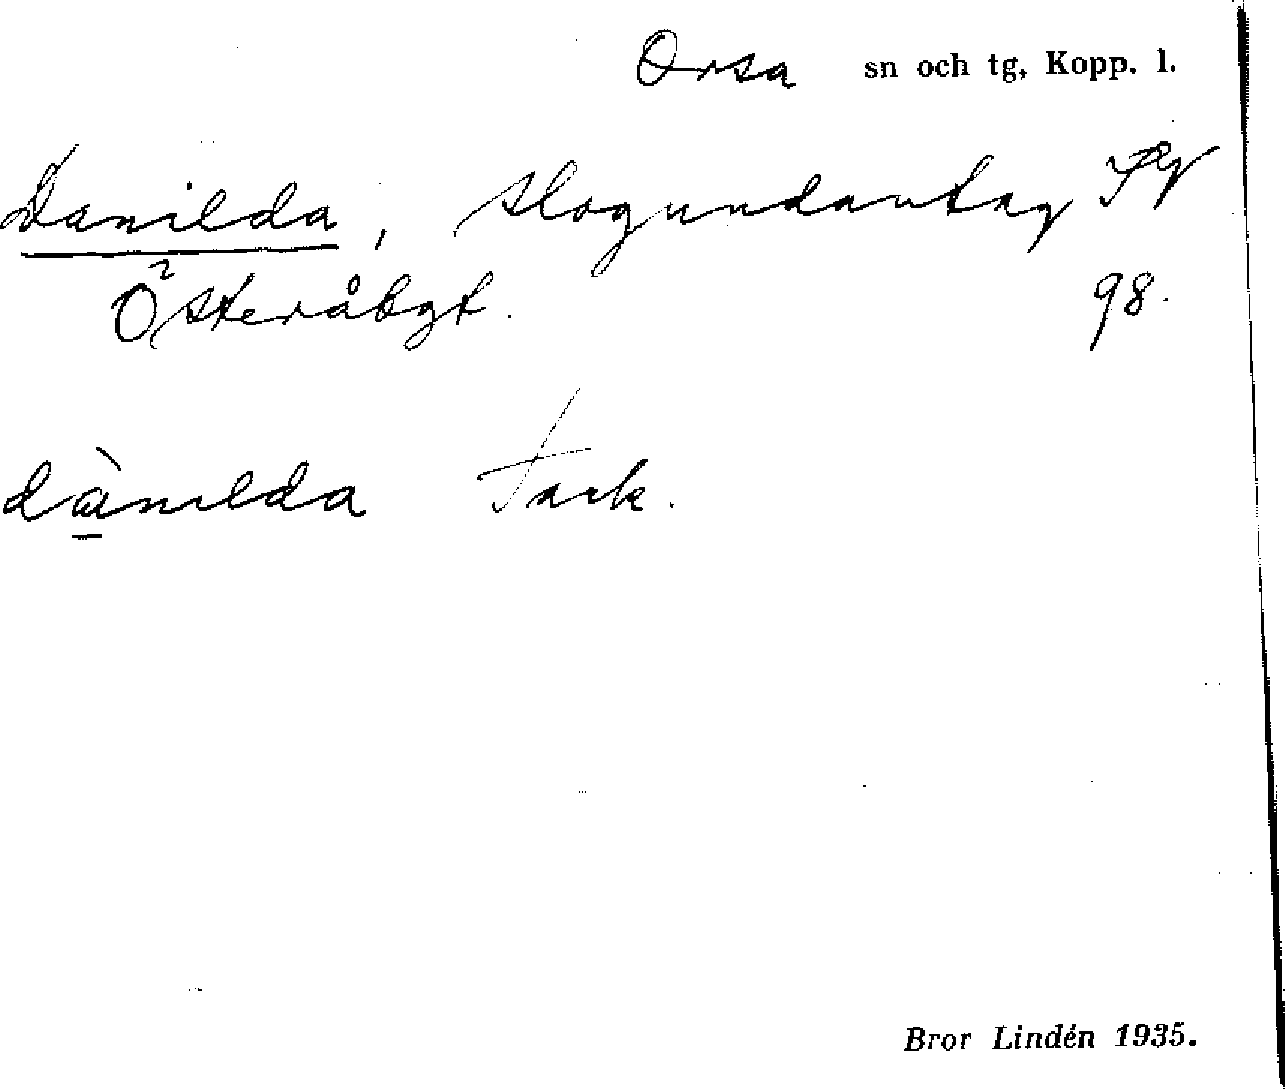 Orsa sn och tg, Kopp. l.
Danilda, skogundantag
Österåbgt. 98.
dànılda Tack.
Bror Lindén 1935.